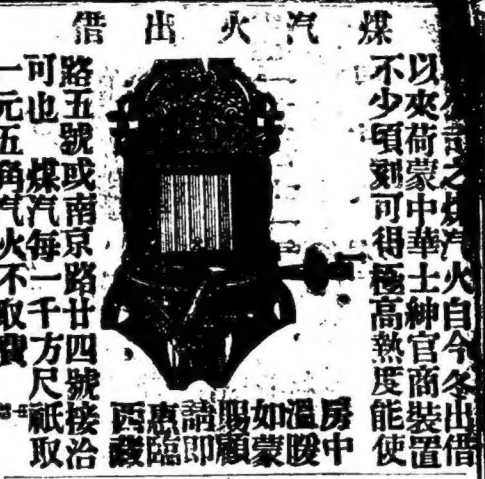 煤汽火出借
公司之煤汽火自今冬出借
以來荷蒙中華士紳官商裝置
不少頃刻可得極高熱度能使
房中
溫暖
如蒙
賜顧
請即
惠臨
西藏
路五號或南京路廿四號接洽
可也　煤汽每一千方尺祇取
一元五角汽火不取費